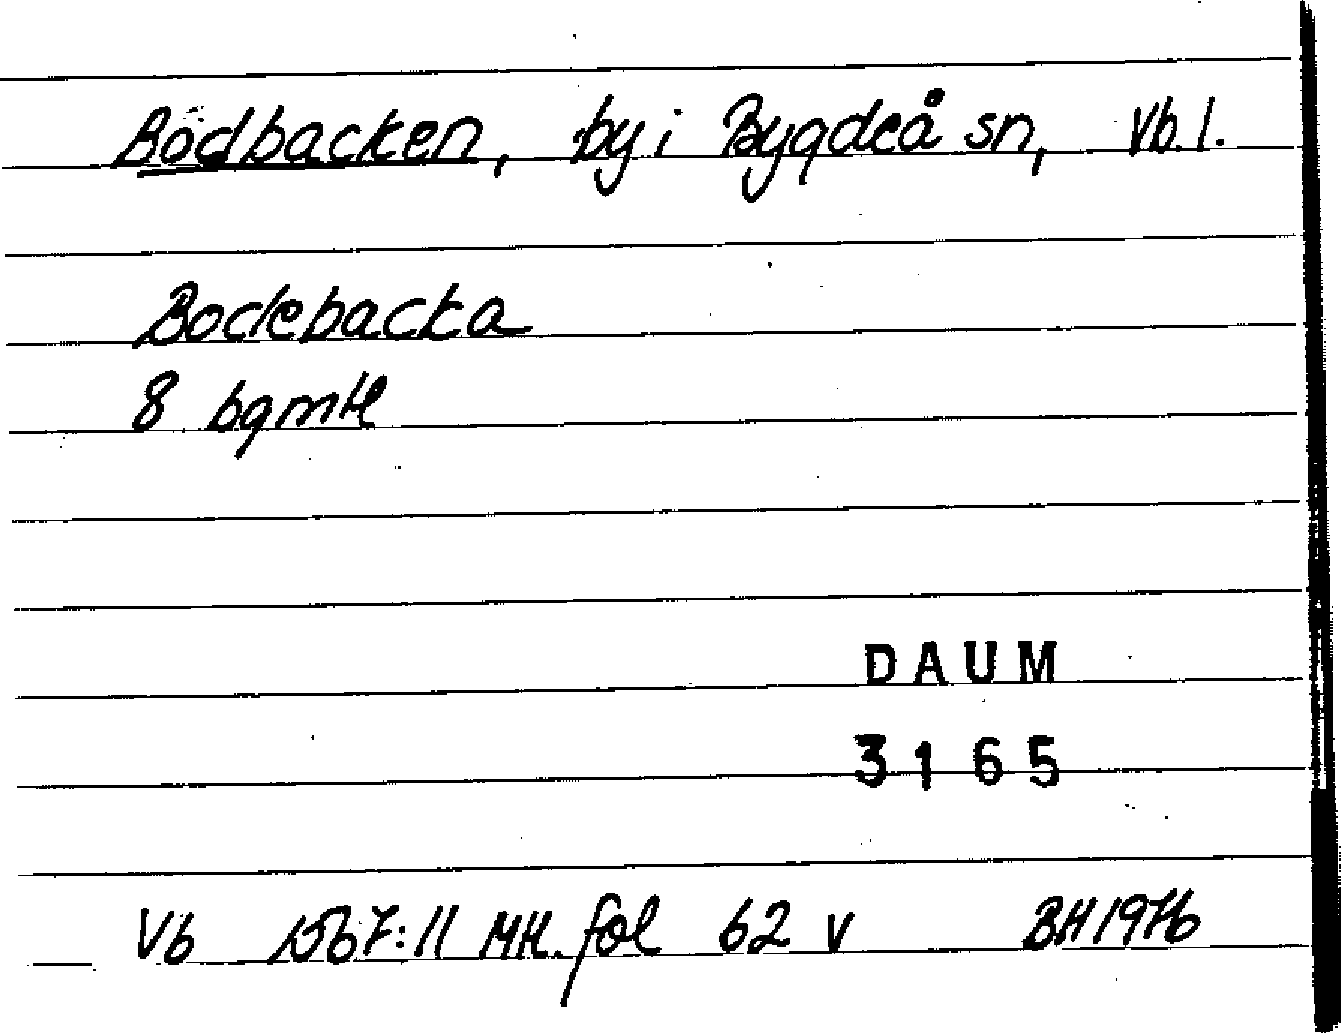 Bödbacken, by i Bygdeå sn, Vb. l.
Bodebacka
8 bgmtl
DAUM
3165
Vb 1567:11 MH. fol 62 v BH 1976